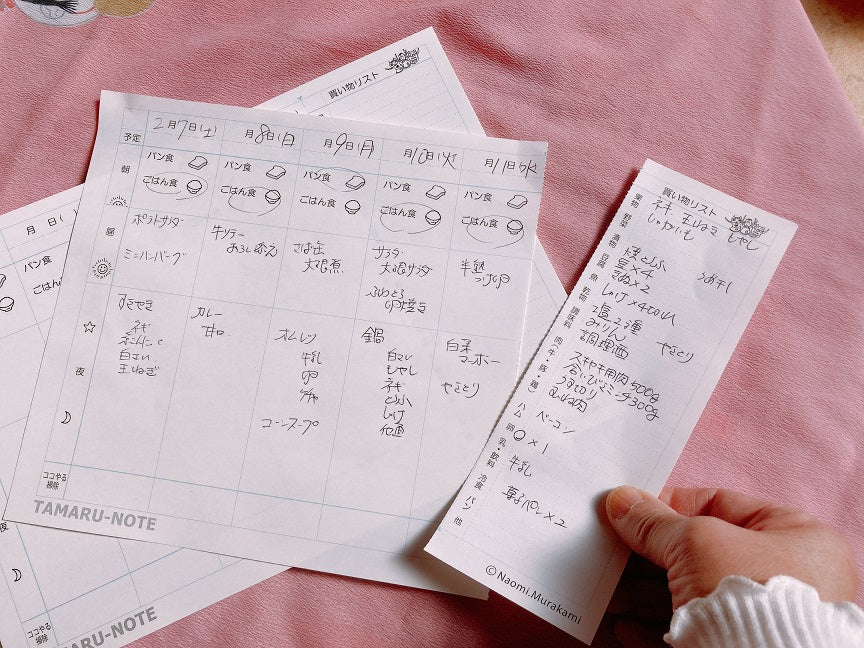 買い物リスト
予定
2月7日(土)
月8日(日)
月9日(月)
月10日(火)
月11日(水)
朝
パン食
パン食
パン食
パン食
パン食
ごはん食
ごはん食
ごはん食
ごはん食
ごはん食
昼
ポテトサラダ
ミニハンバーグ
牛ソテー
さば缶
大根煮
サラダ
大根サラダ
ふわとろ
卵焼き
半熟
つけ卵
夜
すきやき
ネギ
白さい
玉ねぎ
カレー
甘口
オムレツ
牛乳
卵
コーンスープ
鍋
白さい
もやし
ネギ
とうふ
しゃけ
白菜
マーボー
やきとり
ココやる
掃除
TAMARU-NOTE
月 日( )
パン食
ごはん食
夜
ココやる
掃除
TAMARU-NOTE
買い物リスト
果物・野菜
ネギ 玉ねぎ もやし
じゃがいも
漬物・豆腐
焼とうふ
うめ干し
豆×4
きぬ×2
魚・乾物
しゃけ×4
調味料
塩2種
みりん
やきとり
調理酒
肉(牛・豚・鶏)
スキヤキ用肉500g
合いびきミンチ300g
うす切り
むね肉
ハム
ベーコン
卵
×1
乳・飲料
牛乳
冷食
パン
菓子パン×2
他
©Naomi.Murakami